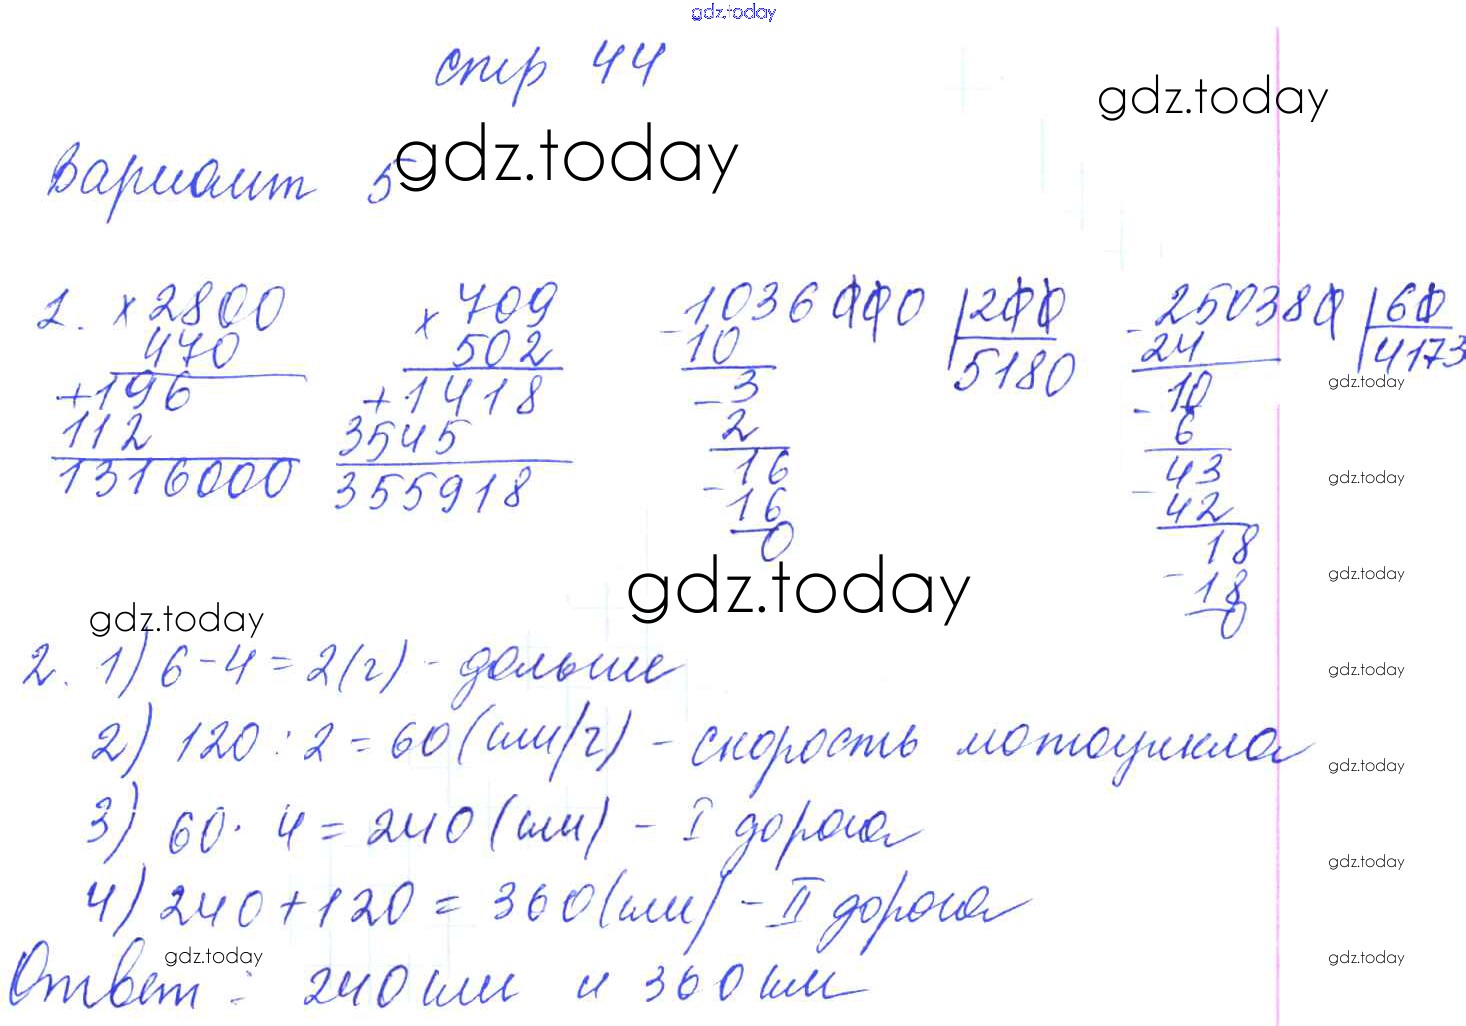 gdz.today
стр 44
gdz.today
Вариант 5
gdz.today
1. × 2800 × 709 1036000 | 200 250380 | 60
470 502 - 10 5180 - 24 4173
+ 196 + 1418 3 10
gdz.today
112 3545 - 2 - 6
1316000 355918 16 43
gdz.today
- 16 - 42
0 18
gdz.today
gdz.today
- 18
0
gdz.today
2. 1) 6 - 4 = 2 (г) - дольше
gdz.today
2) 120 : 2 = 60 (км/г) - скорость мотоцикла
gdz.today
3) 60 · 4 = 240 (км) - I дорога
gdz.today
4) 240 + 120 = 360 (км) - II дорога
gdz.today
gdz.today
Ответ: 240 км и 360 км